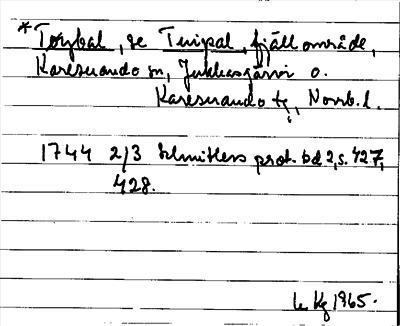 *Torpbal, se Tuipal, fjällområde,
Karesuando sn, Jukkasjärvi o.
Karesuando tg, Norrb. l.
1744 2/3 Schnitlers prot. bd 2, s. 427,
428.
Kg 1965.